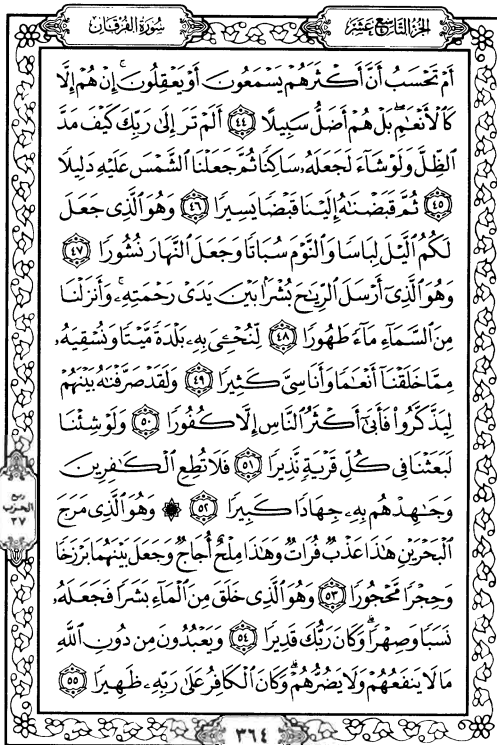 سُورَةُ الفُرْقَان
الجُزْءُ التَّاسِعَ عَشَرَ
أَمْ تَحْسَبُ أَنَّ أَكْثَرَهُمْ يَسْمَعُونَ أَوْ يَعْقِلُونَ ۚ إِنْ هُمْ إِلَّا
كَالْأَنْعَامِ ۖ بَلْ هُمْ أَضَلُّ سَبِيلًا ٤٤ أَلَمْ تَرَ إِلَىٰ رَبِّكَ كَيْفَ مَدَّ
الظِّلَّ وَلَوْ شَاءَ لَجَعَلَهُ سَاكِنًا ثُمَّ جَعَلْنَا الشَّمْسَ عَلَيْهِ دَلِيلًا
٤٥ ثُمَّ قَبَضْنَاهُ إِلَيْنَا قَبْضًا يَسِيرًا ٤٦ وَهُوَ الَّذِي جَعَلَ
لَكُمُ اللَّيْلَ لِبَاسًا وَالنَّوْمَ سُبَاتًا وَجَعَلَ النَّهَارَ نُشُورًا ٤٧
وَهُوَ الَّذِي أَرْسَلَ الرِّيَاحَ بُشْرًا بَيْنَ يَدَيْ رَحْمَتِهِ ۚ وَأَنزَلْنَا
مِنَ السَّمَاءِ مَاءً طَهُورًا ٤٨ لِّنُحْيِيَ بِهِ بَلْدَةً مَّيْتًا وَنُسْقِيَهُ
مِمَّا خَلَقْنَا أَنْعَامًا وَأَنَاسِيَّ كَثِيرًا ٤٩ وَلَقَدْ صَرَّفْنَاهُ بَيْنَهُمْ
لِيَذَّكَّرُوا فَأَبَىٰ أَكْثَرُ النَّاسِ إِلَّا كُفُورًا ٥٠ وَلَوْ شِئْنَا
لَبَعَثْنَا فِي كُلِّ قَرْيَةٍ نَّذِيرًا ٥١ فَلَا تُطِعِ الْكَافِرِينَ
وَجَاهِدْهُم بِهِ جِهَادًا كَبِيرًا ٥٢ ۞ وَهُوَ الَّذِي مَرَجَ
الْبَحْرَيْنِ هَٰذَا عَذْبٌ فُرَاتٌ وَهَٰذَا مِلْحٌ أُجَاجٌ وَجَعَلَ بَيْنَهُمَا بَرْزَخًا
وَحِجْرًا مَّحْجُورًا ٥٣ وَهُوَ الَّذِي خَلَقَ مِنَ الْمَاءِ بَشَرًا فَجَعَلَهُ
نَسَبًا وَصِهْرًا ۗ وَكَانَ رَبُّكَ قَدِيرًا ٥٤ وَيَعْبُدُونَ مِن دُونِ اللَّهِ
مَا لَا يَنفَعُهُمْ وَلَا يَضُرُّهُمْ ۗ وَكَانَ الْكَافِرُ عَلَىٰ رَبِّهِ ظَهِيرًا ٥٥
ربع
الحزب
٣٧
٣٦٤